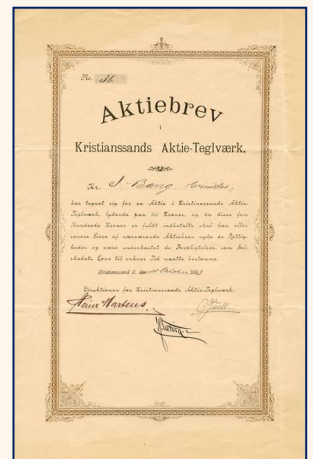 No. 36
Aktiebrev
i
Kristianssands Aktie-Teglværk.
Hr. J. Bang, Grimstad,
har tegnet sig for en Aktie i Kristianssands Aktie-
Teglværk, lydende paa 100 Kroner, og da disse
Hundrede Kroner er fuldt indbetalte skal han eller
senere Eiere af nærværende Aktiebrev nyde de Rettig-
heder og være underkastet de Forpligtelser, som Sel-
skabets Love til enhver Tid maatte bestemme.
Kristianssand S. den October 189
Direktionen for Kristianssands Aktie-Teglværk.
Martens.